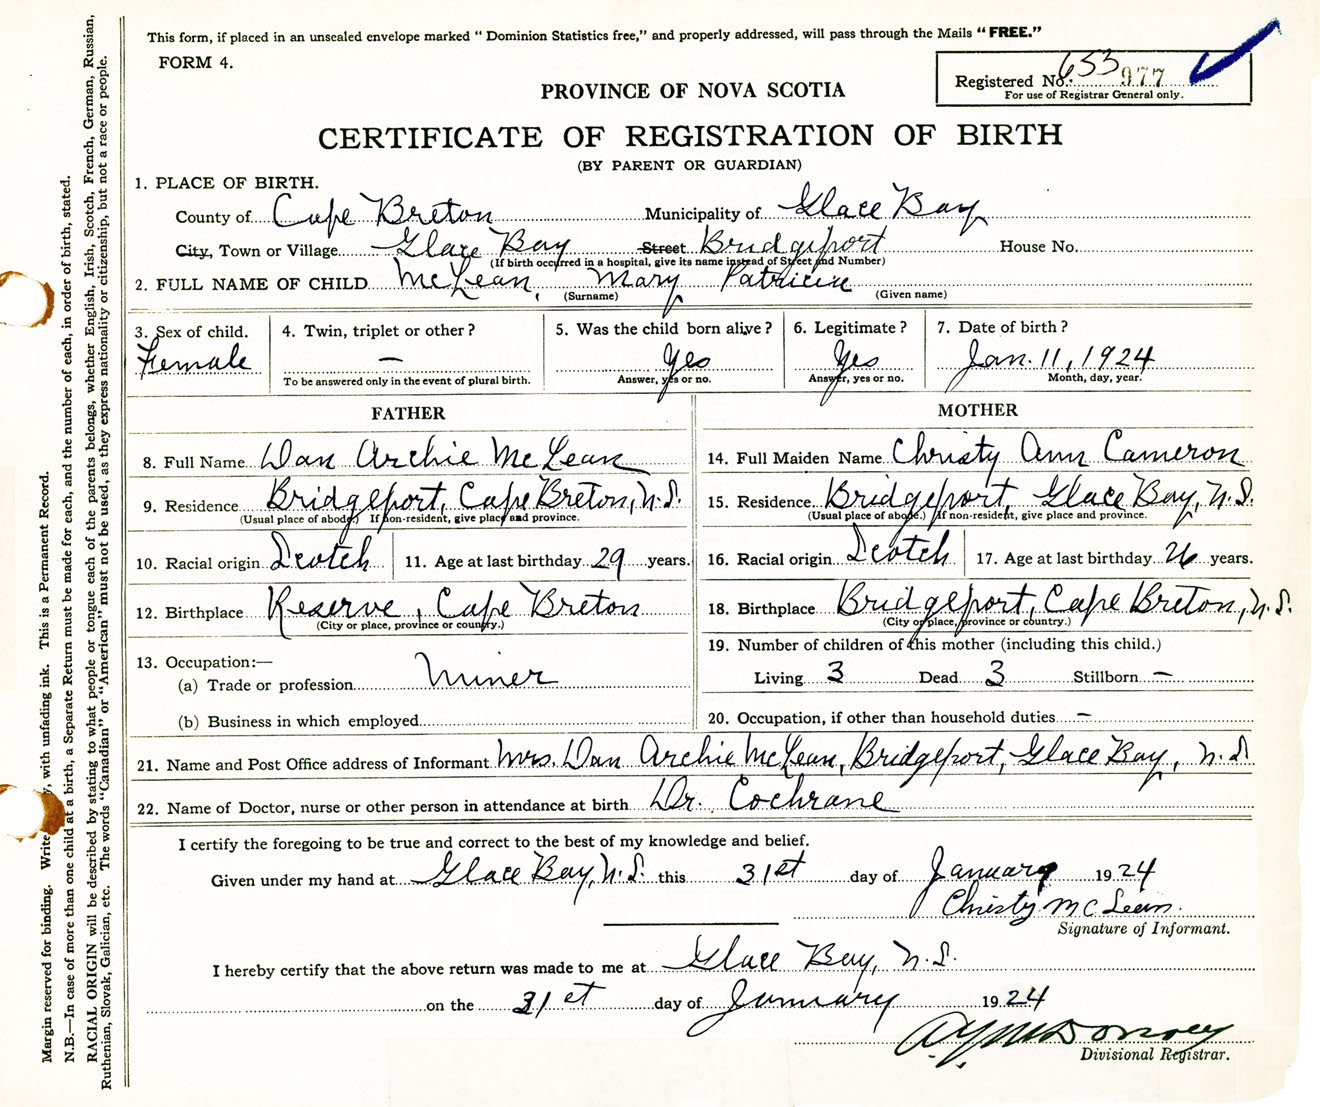 This form, if placed in an unsealed envelope marked " Dominion Statistics free," and properly addressed, will pass through the Mails " FREE."
FORM 4.
Registered No. 653 977
For use of Registrar General only.
PROVINCE OF NOVA SCOTIA
CERTIFICATE OF REGISTRATION OF BIRTH
(BY PARENT OR GUARDIAN)
1. PLACE OF BIRTH.
County of Cape Breton Municipality of Glace Bay
City, Town or Village Glace Bay Street Bridgeport House No.
(If birth occurred in a hospital, give its name instead of Street and Number)
2. FULL NAME OF CHILD McLean, Mary Patricia
(Surname) (Given name)
3. Sex of child. 4. Twin, triplet or other ? 5. Was the child born alive ? 6. Legitimate ? 7. Date of birth ?
Female — Yes Yes Jan. 11, 1924
To be answered only in the event of plural birth. Answer, yes or no. Answer, yes or no. Month, day, year.
FATHER MOTHER
8. Full Name Dan Archie McLean 14. Full Maiden Name Christy Ann Cameron
9. Residence Bridgeport, Cape Breton, N.S. 15. Residence Bridgeport, Glace Bay, N.S.
(Usual place of abode.) If non-resident, give place and province. (Usual place of abode.) If non-resident, give place and province.
10. Racial origin Scotch 11. Age at last birthday 29 years. 16. Racial origin Scotch 17. Age at last birthday 26 years.
12. Birthplace Reserve, Cape Breton 18. Birthplace Bridgeport, Cape Breton, N.S.
(City or place, province or country.) (City or place, province or country.)
13. Occupation:— 19. Number of children of this mother (including this child.)
(a) Trade or profession Miner Living 3 Dead 3 Stillborn —
(b) Business in which employed 20. Occupation, if other than household duties —
21. Name and Post Office address of Informant Mrs. Dan Archie McLean, Bridgeport, Glace Bay, N.S.
22. Name of Doctor, nurse or other person in attendance at birth Dr. Cochrane
I certify the foregoing to be true and correct to the best of my knowledge and belief.
Given under my hand at Glace Bay, N.S. this 31st day of January 1924
Christy McLean.
Signature of Informant.
I hereby certify that the above return was made to me at Glace Bay, N.S.
on the 31st day of January 1924
Divisional Registrar.
Margin reserved for binding. Write with unfading ink. This is a Permanent Record.
N.B.—In case of more than one child at a birth, a Separate Return must be made for each, and the number of each, in order of birth, stated.
RACIAL ORIGIN will be described by stating to what people or tongue each of the parents belongs, whether English, Irish, Scotch, French, German, Russian,
Ruthenian, Slovak, Galician, etc. The words "Canadian" or "American" must not be used, as they express nationality or citizenship, but not a race or people.